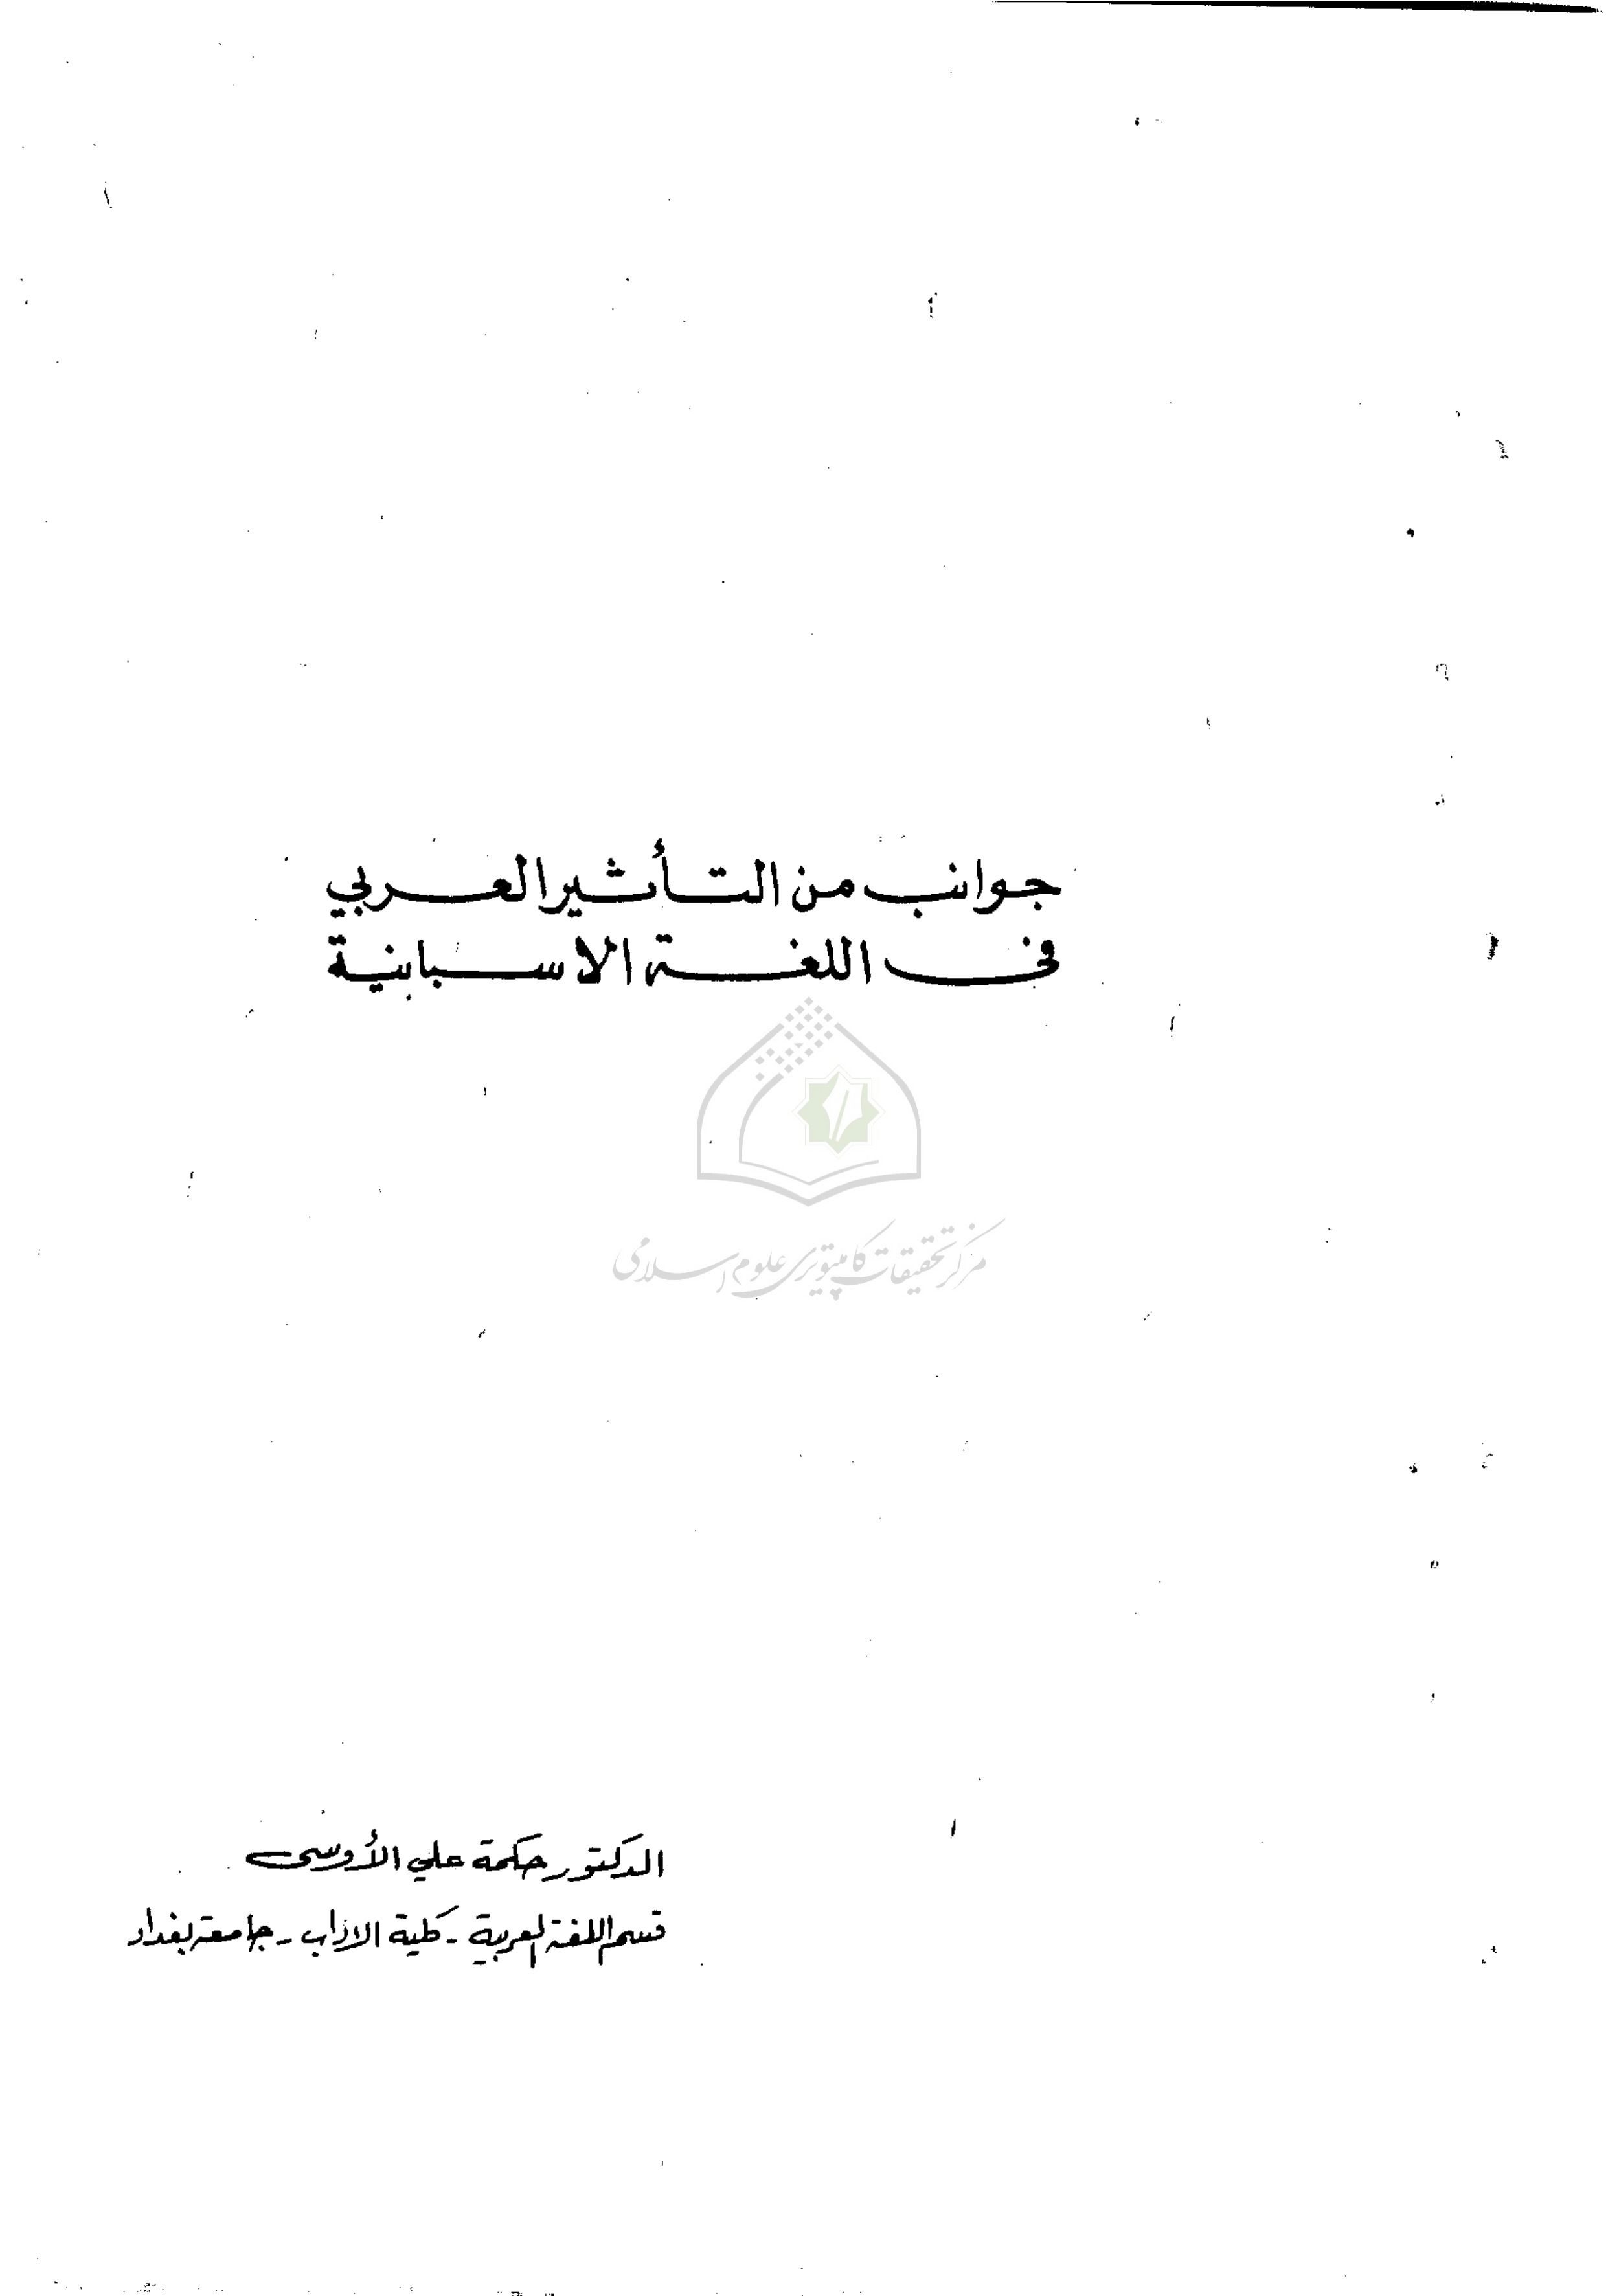 جوانب من التأثير العربي
في اللغة الاسبانية
مركز تحقيقات كامپيوتری علوم اسلامی
الدكتور حكمة علي الأوسي
قسم اللغة العربية - كلية الاداب - جامعة بغداد